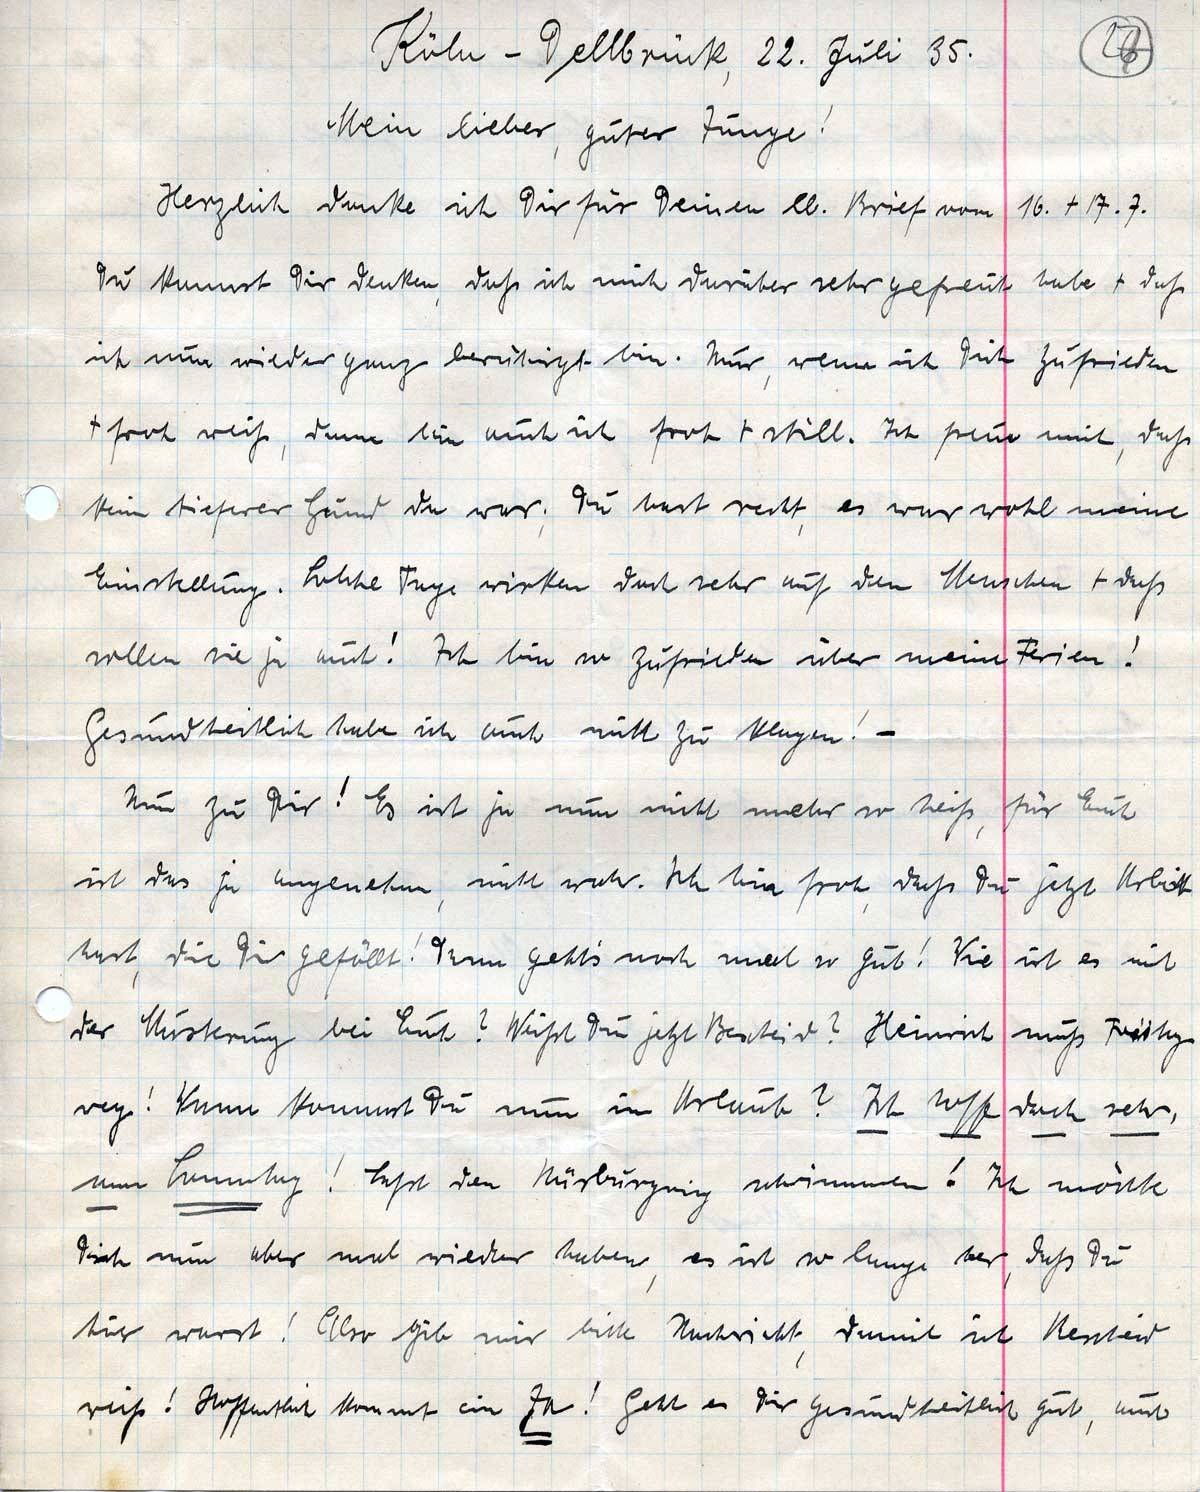 Köln - Dellbrück, 22. Juli 35.
Mein lieber, guter Junge!
Herzlich danke ich Dir für Deinen lb. Brief vom 16. + 17. 7.
Du kannst Dir denken, daß ich mich darüber sehr gefreut habe + daß
ich nun wieder ganz beruhigt bin. Nur, wenn ich Dich zufrieden
+ froh weiß, dann bin auch ich froh + still. Ich freue mich, daß
kein tieferer Grund da war, Du hast recht, es war wohl meine
Einstellung. Solche Tage wirken doch sehr auf den Menschen + daß
sollen sie ja auch! Ich bin so zufrieden über meine Ferien!
Gesundheitlich habe ich auch nicht zu klagen! -
Nun zu Dir! Es ist ja nun nicht mehr so heiß, für Euch
ist das ja angenehm, nicht wahr. Ich bin froh, daß Du jetzt Arbeit
hast, die Dir gefällt! Dann geht's noch mal so gut! Wie ist es mit
der Musterung bei Euch? Weißt Du jetzt Bescheid? Heinrich muß Freitag
weg! Wann kommst Du nun in Urlaub? Ich hoffe doch sehr,
nun Sonntag! Laßt den Nürburgring schwimmen! Ich möchte
Dich nun aber mal wieder haben, es ist so lange her, daß Du
hier warst! Also gib mir bitte Nachricht, damit ich Bescheid
weiß! Hoffentlich kommt ein Ja! Geht es Dir gesundheitlich gut, auch